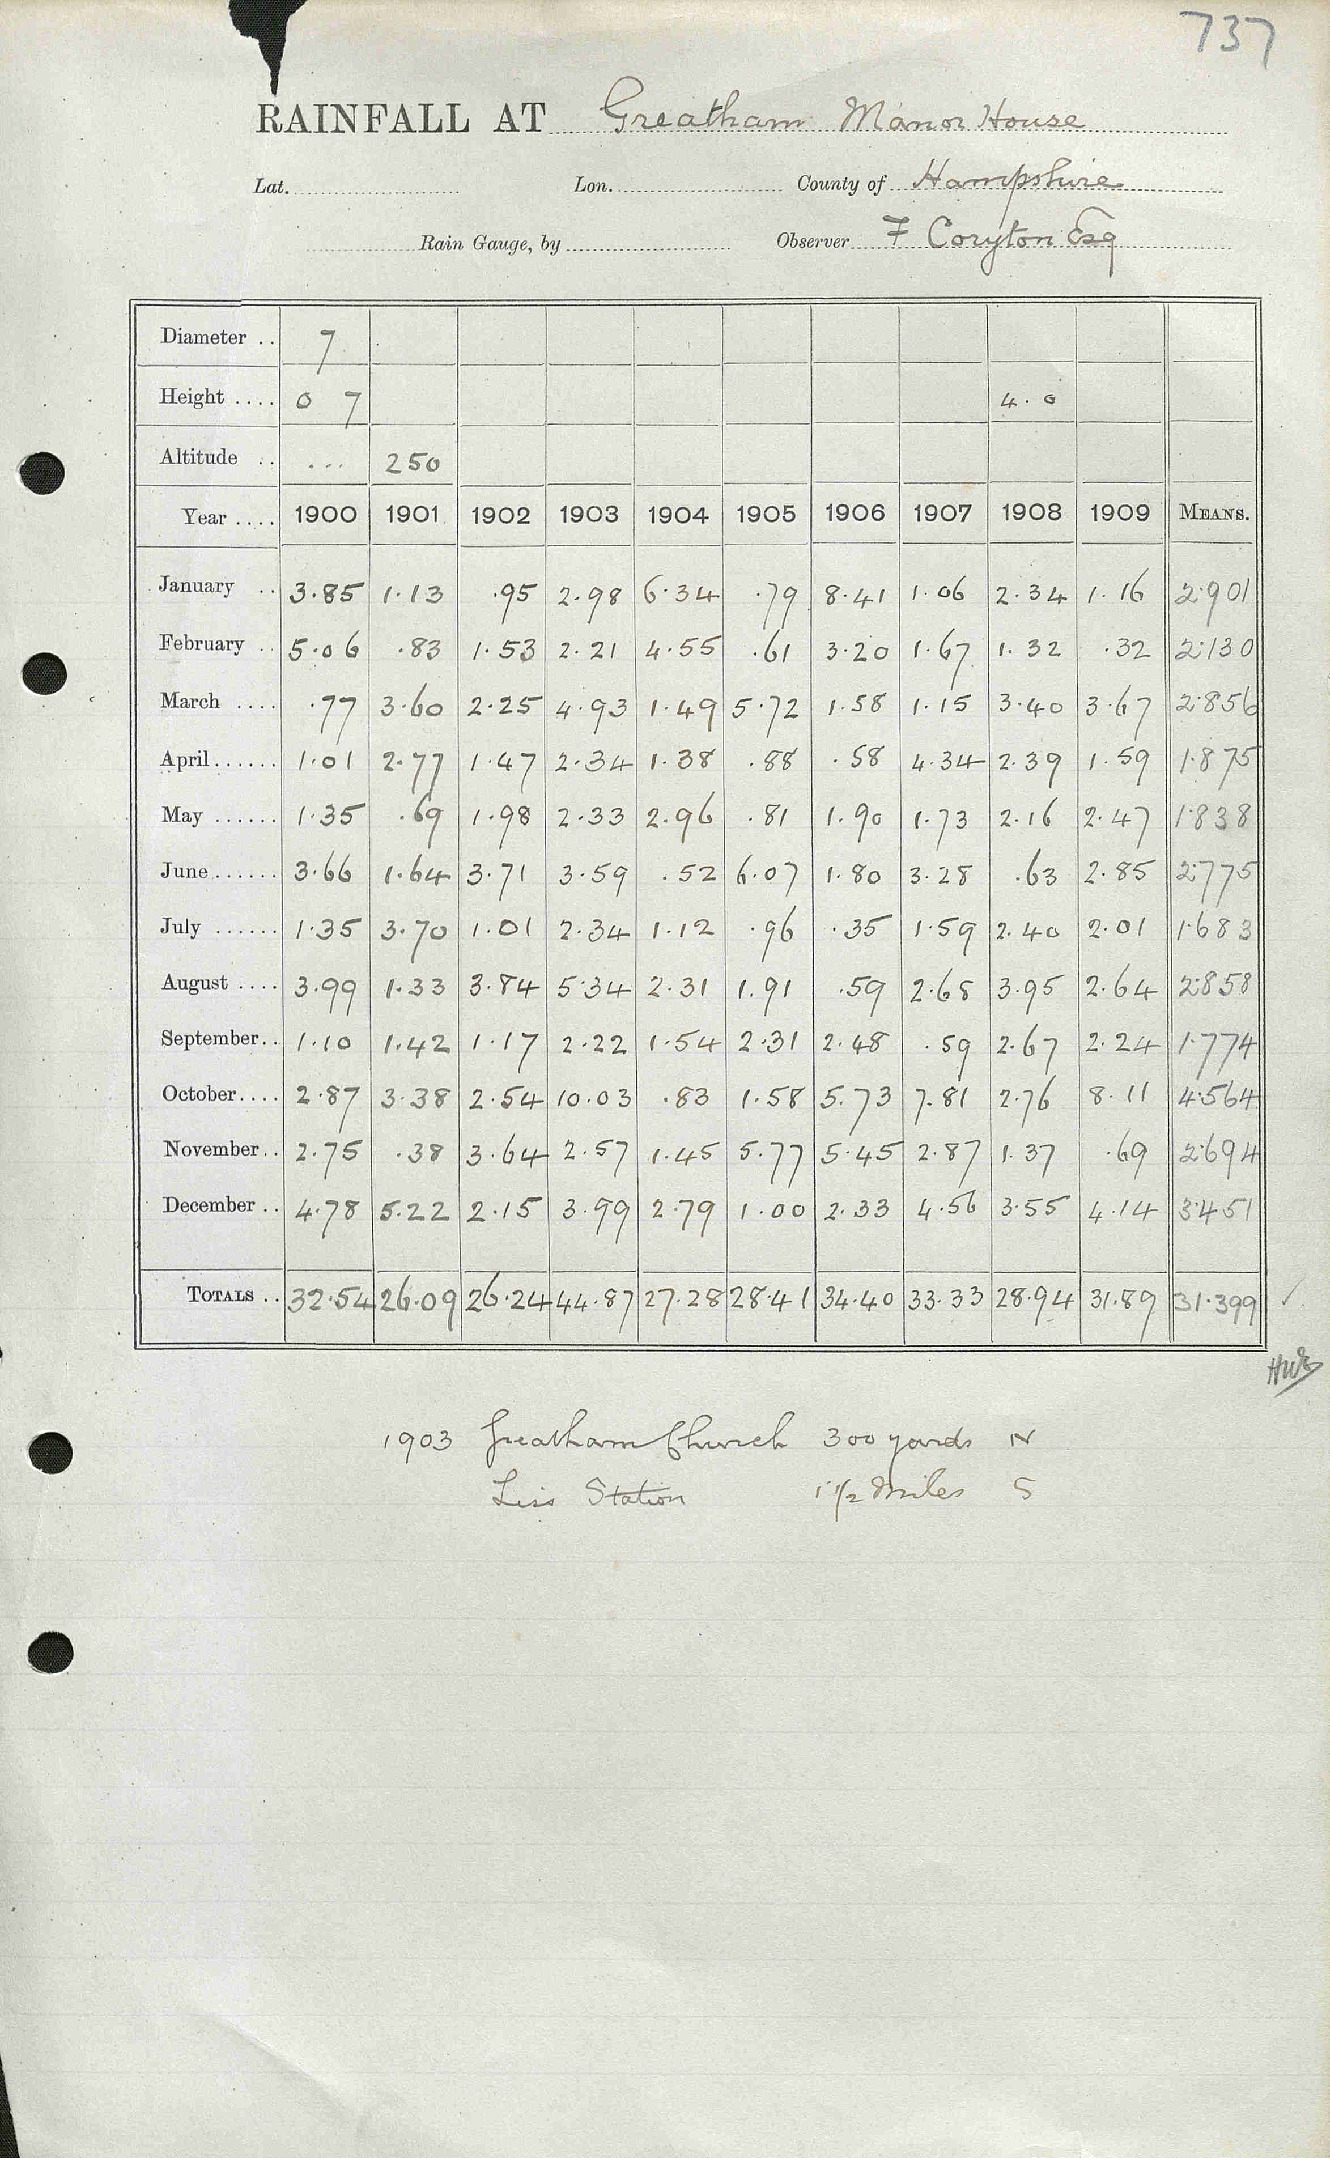 737
RAINFALL AT Greatham Manor House
Lat. Lon. County of Hampshire
Rain Gauge, by Observer F Coryton Esq
Diameter .. 7
Height .... 0 7 4.0
Altitude .. ... 250
Year .... 1900 1901 1902 1903 1904 1905 1906 1907 1908 1909 MEANS.
January .. 3.85 1.13 .95 2.98 6.34 .79 8.41 1.06 2.34 1.16 2.901
February .. 5.06 .83 1.53 2.21 4.55 .61 3.20 1.67 1.32 .32 2.130
March .... .77 3.60 2.25 4.93 1.49 5.72 1.58 1.15 3.40 3.67 2.856
April...... 1.01 2.77 1.47 2.34 1.38 .88 .58 4.34 2.39 1.59 1.875
May ...... 1.35 .69 1.98 2.33 2.96 .81 1.90 1.73 2.16 2.47 1.838
June...... 3.66 1.64 3.71 3.59 .52 6.07 1.80 3.28 .63 2.85 2.775
July ...... 1.35 3.70 1.01 2.34 1.12 .96 .35 1.59 2.40 2.01 1.683
August .... 3.99 1.33 3.84 5.34 2.31 1.91 .59 2.68 3.95 2.64 2.858
September.. 1.10 1.42 1.17 2.22 1.54 2.31 2.48 .59 2.67 2.24 1.774
October.... 2.87 3.38 2.54 10.03 .83 1.58 5.73 7.81 2.76 8.11 4.564
November.. 2.75 .38 3.64 2.57 1.45 5.77 5.45 2.87 1.37 .69 2.694
December .. 4.78 5.22 2.15 3.99 2.79 1.00 2.33 4.56 3.55 4.14 3.451
TOTALS .. 32.54 26.09 26.24 44.87 27.28 28.41 34.40 33.33 28.94 31.89 31.399
1903 Greatham Church 300 yards N
Liss Station 1 1/2 Miles S